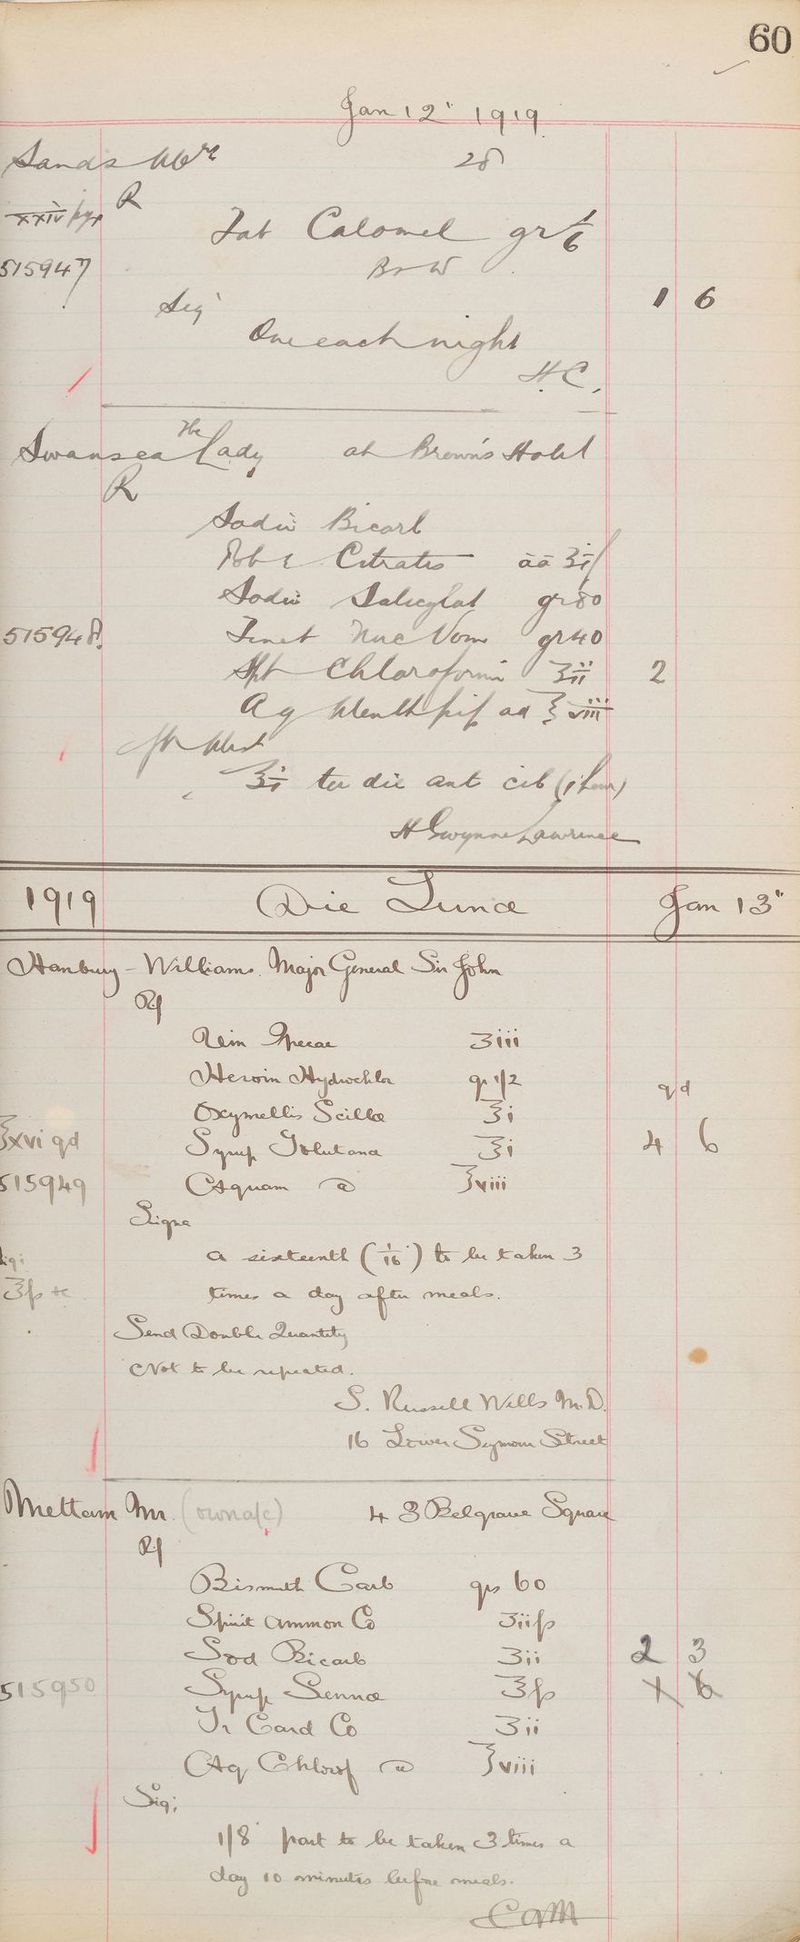 60
Jan 12" 1919
Sands Mrs 28
R
xxiv
Tab Calomel gr 1/6
515947
1 6
Sig
One each night
H.C.
Swansea The Lady at Brown's Hotel
R
Sodii Bicarb
Citratis āā ʒi
Sodii Salicylat gr 80
515948 Tinct Nuc Vom gr 40
Spt Chloroformi ʒii 2
Aq Menth pip ad ℥viii
ʒi ter die ant cib (1 hour)
H Gwynne Lawrence
1919 Die Lunæ Jan 13"
Hanbury-Williams. Major General Sir John
Rf
Vin Ipecac ʒiii
Heroin Hydrochlor gr 1/2
qd
Oxymellis Scillæ ℥i
℥xvi qd Syrup Tolutana ℥i 4 6
515949 Aquam a ℥viii
Signa
a sixteenth (1/16) to be taken 3
times a day after meals.
Send Double Quantity
Not to be repeated.
S. Russell Wells M.D.
16 Lower Seymour Street
Mettam Mr. (own a/c) 43 Belgrave Square
Rf
Bismuth Carb grs 60
Spirit Ammon Co ʒiiſs
Sod Bicarb ʒii 2 3
515950 Syrup Sennæ ℥ſs 1 6
Tr Card Co ʒii
Aq Chlorof a ℥viii
Sig;
1/8 part to be taken 3 times a
day 10 minutes before meals.